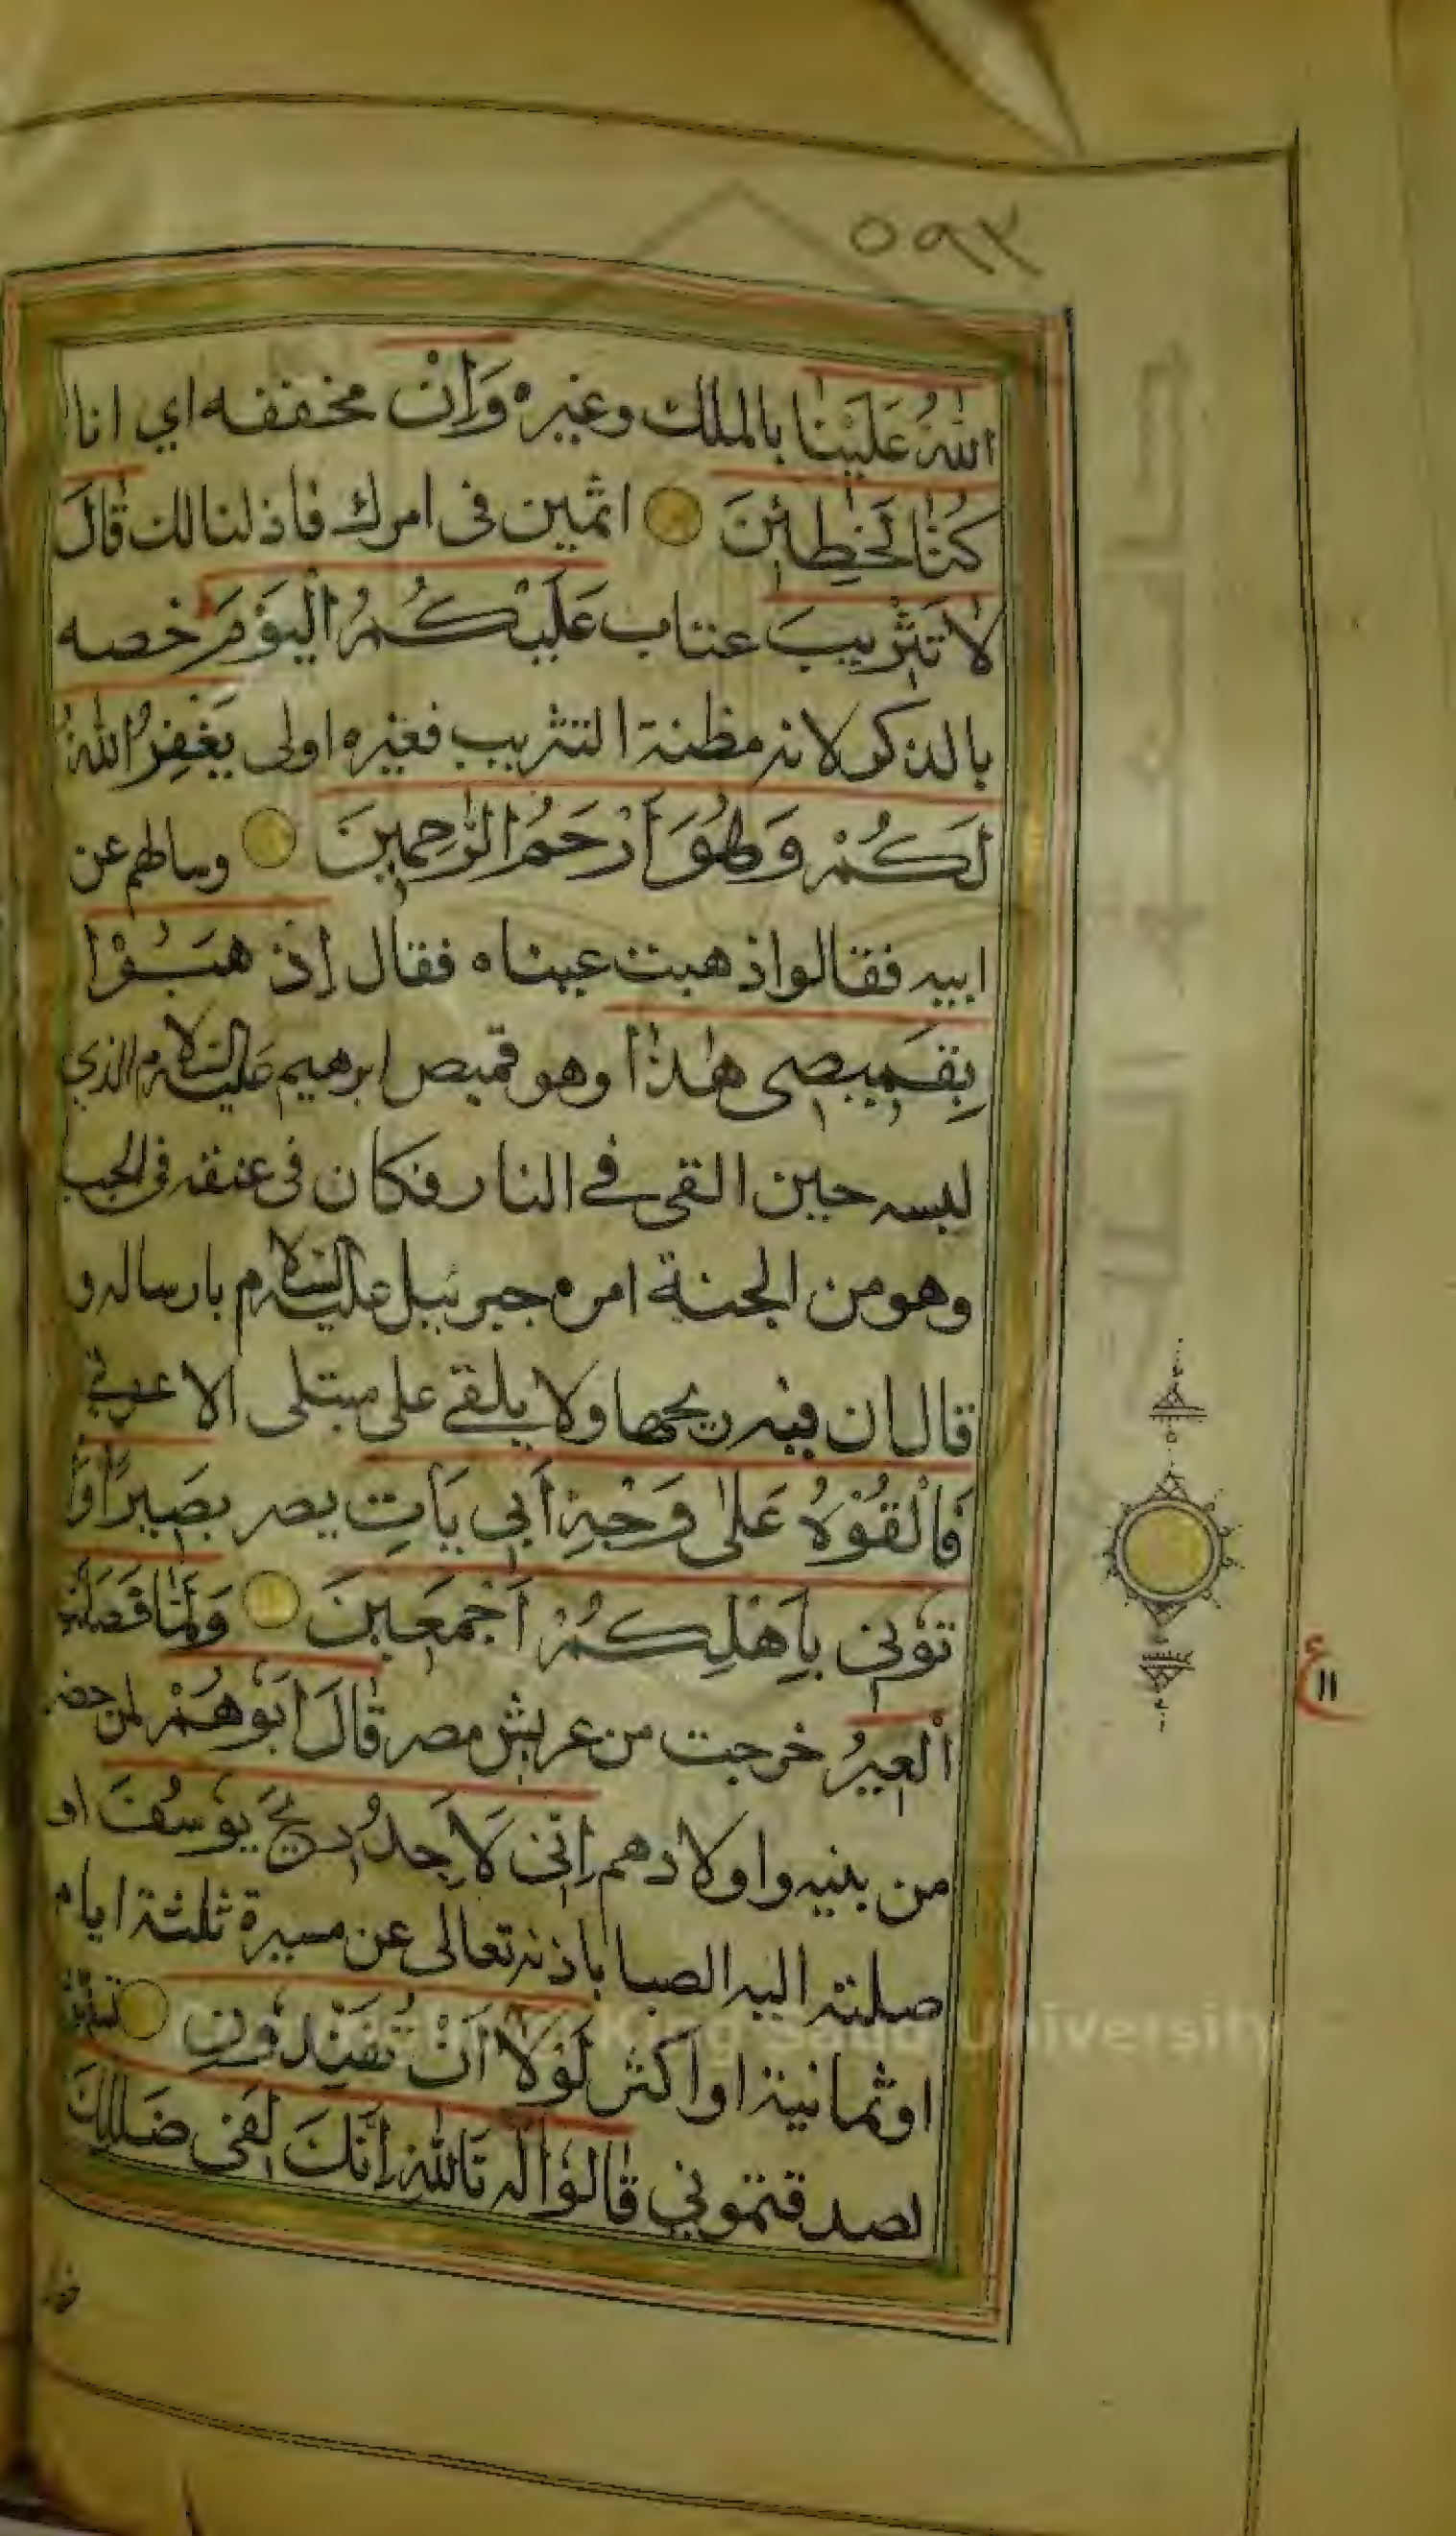 ٥٩٣
اللّٰهُ عَلَيْنَا بالملك وغيره وَاِنْ مخففه اي انا
كُنَّا لَخٰطِئِنَ اثمين فى امرك فاذلنا لك قَالَ
لَا تَثْرِيبَ عتاب عَلَيْكُمُ الْيَوْمَ خصه
بالذكر لانه مظنة التثريب فغيره اولى يَغْفِرُ اللّٰهُ
لَكُمْ وَهُوَ اَرْحَمُ الرّٰحِمِينَ وسالهم عن
ابيه فقالوا ذهبت عيناه فقال اِذْهَبُوْا
بِقَمِيصِى هٰذَا وهو قميص ابرهيم عليه السلام الذي
لبسه حين القى فے النار فكان فى عنقه فى الجب
وهو من الجنة امره جبرئيل عليه السلام بارساله و
قال ان فيه ريحها ولا يلقے على مبتلى الا عوفے
فَاَلْقُوْهُ عَلٰى وَجْهِ اَبِى يَاْتِ يصر بَصِيرًا وَاْ
تُوْنِى بِاَهْلِكُمْ اَجْمَعِينَ وَلَمَّا فَصَلَتِ
الْعِيرُ خرجت من عريش مصر قَالَ اَبُوْهُمْ لمن حضر
من بنيه واولادهم اِنِّى لَاَجِدُ رِيحَ يُوْسُفَ او
صلته اليه الصبا باذنه تعالى عن مسيرة ثلثة ايام
او ثمانية او اكثر لَوْلَا اَنْ تُفَنِّدُوْنِ
لصدقتموني قَالُوْا له تَاللّٰهِ اِنَّكَ لَفِى ضَلٰلِكَ
ع
١١
King Saud University